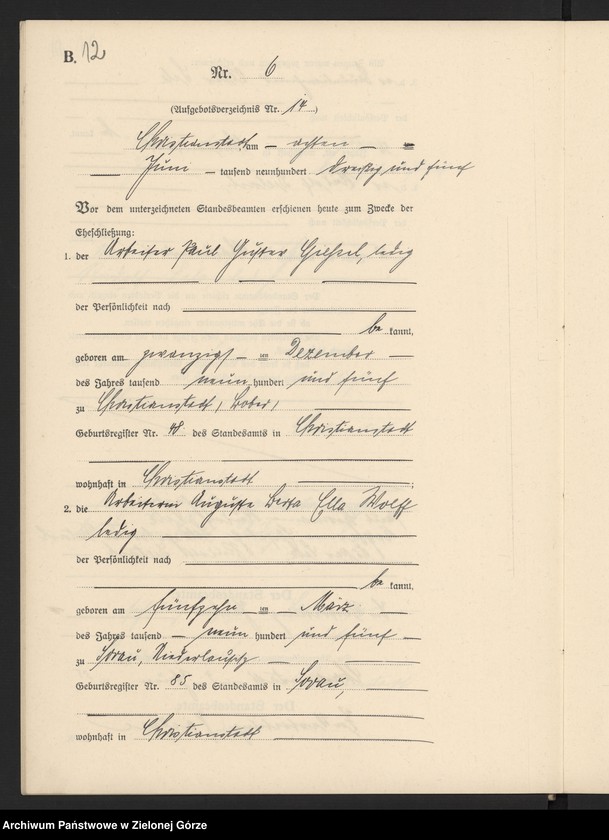 B. 12
Nr. 6
(Aufgebotsverzeichnis Nr. 14)
Christianstadt am — achten —
Juni — tausend neunhundert dreißig und fünf
Vor dem unterzeichneten Standesbeamten erschienen heute zum Zwecke der
Eheschließung:
1. der Arbeiter Paul Gustav ledig
der Persönlichkeit nach
be kannt,
geboren am zwanzigst — en Dezember —
des Jahres tausend neun hundert und fünf
zu Christianstadt, Bober,
Geburtsregister Nr. 48 des Standesamts in Christianstadt
wohnhaft in Christianstadt ;
2. die Arbeiterin Auguste Berta Ella Wolff
ledig
der Persönlichkeit nach
be kannt,
geboren am fünfzehn — en — März
des Jahres tausend — neun hundert und fünf —
zu Sorau, Niederlausitz —
Geburtsregister Nr. 85 des Standesamts in Sorau,
wohnhaft in Christianstadt
Archiwum Państwowe w Zielonej Górze